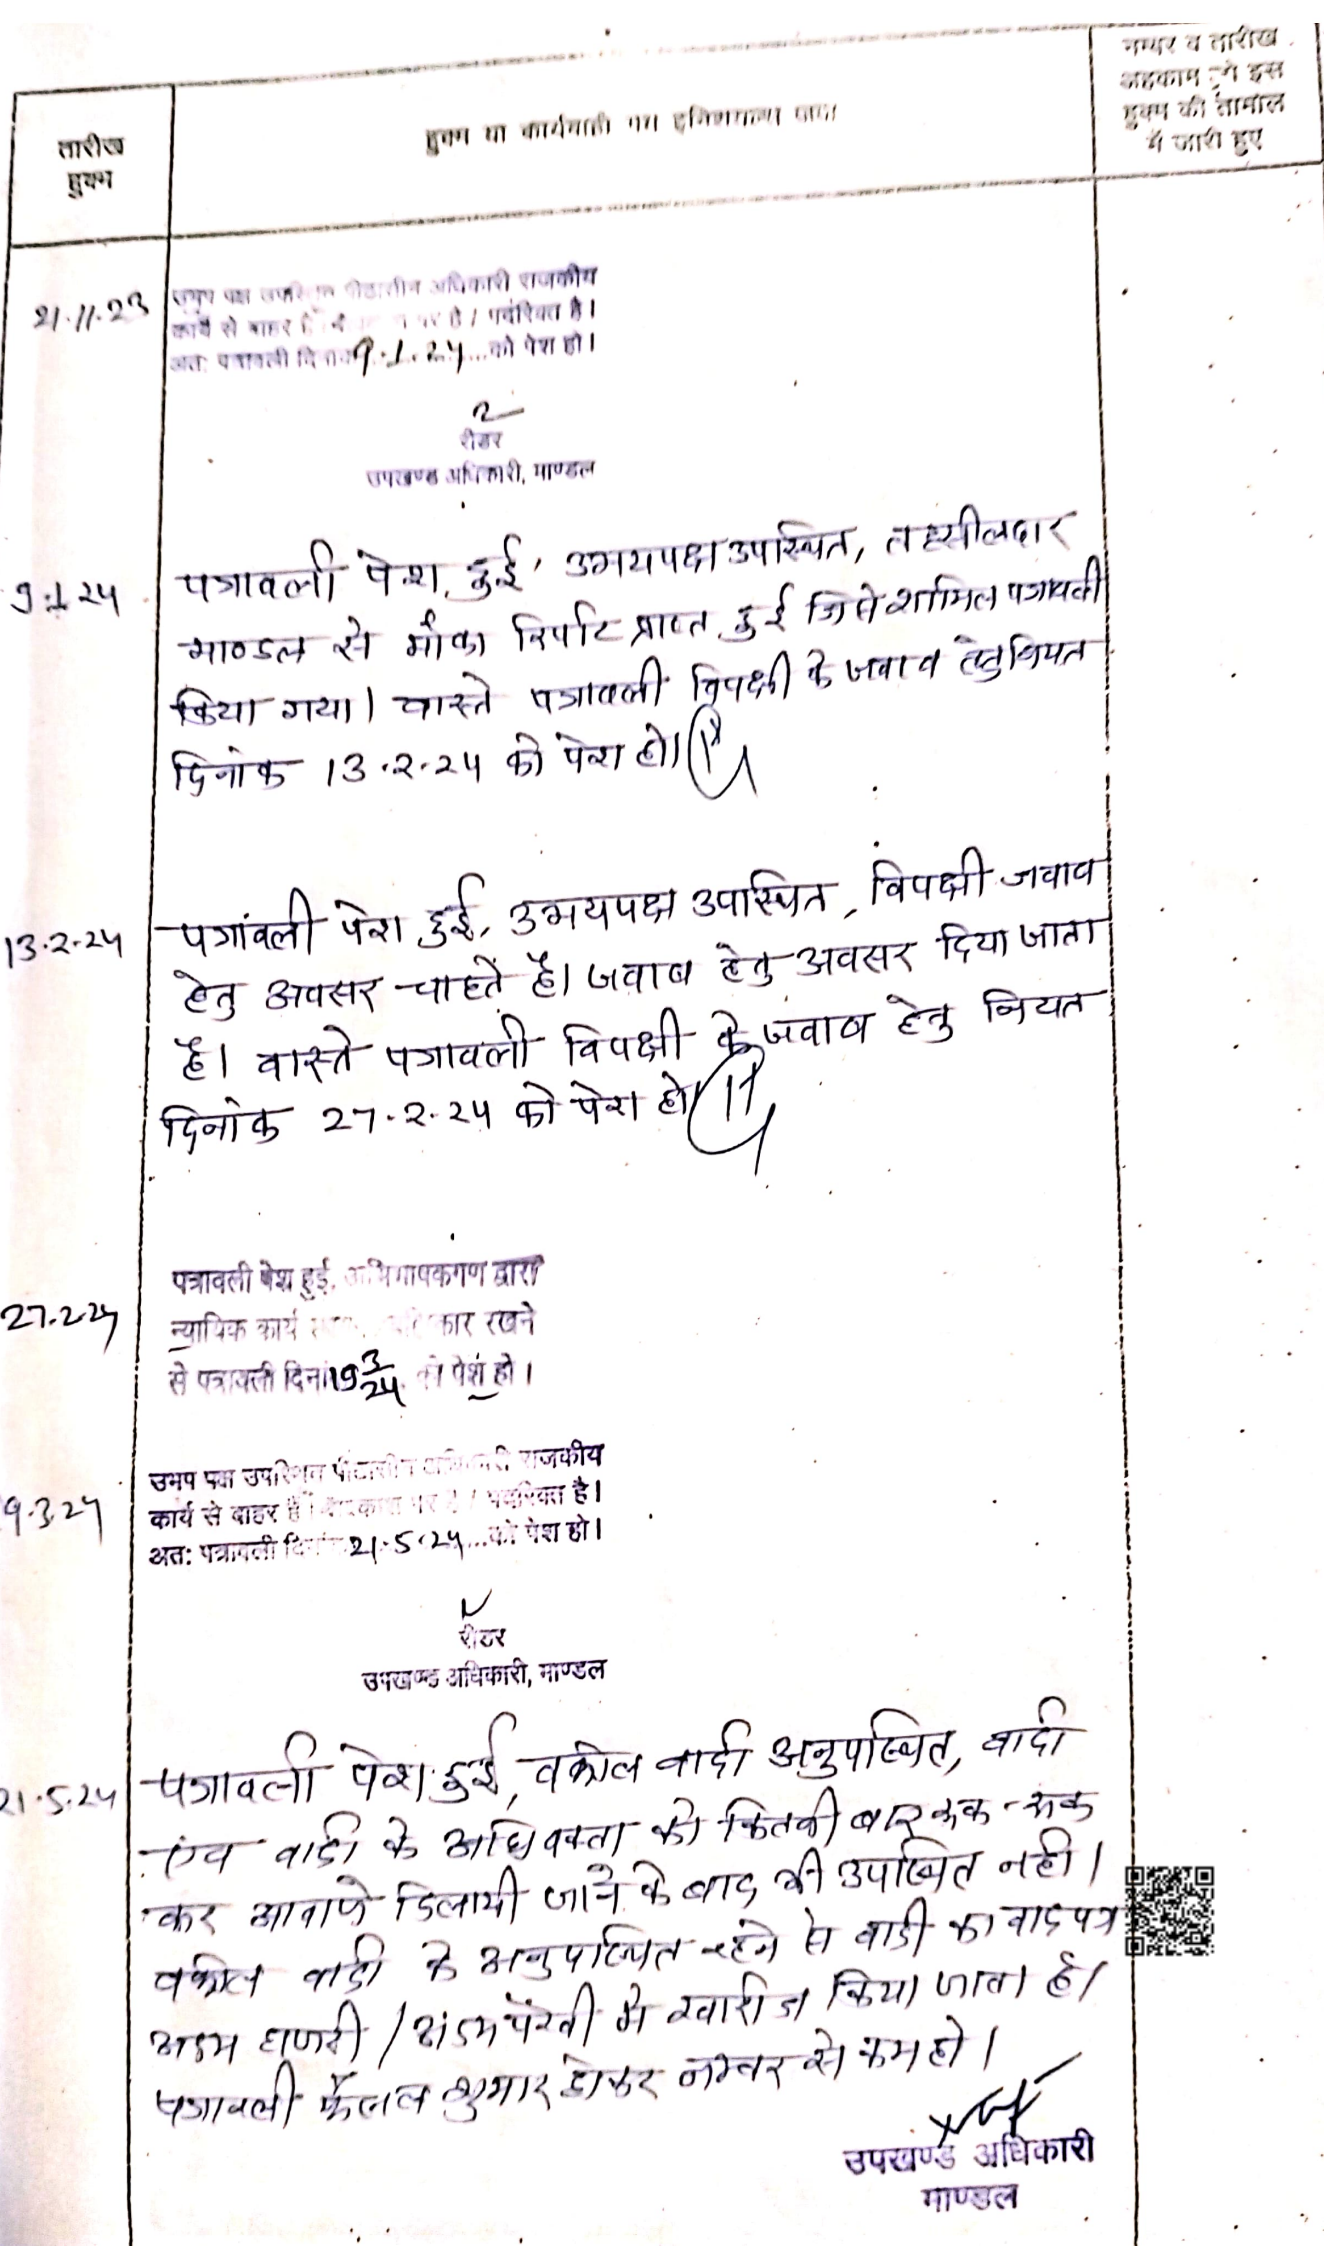 तारीख
हुक्म
हुक्म या कार्यवाही मय इनिशियल्स जज
नम्बर व तारीख
अहकाम जो इस
हुक्म की तामील
में जारी हुए
21.11.23
उभय पक्ष उपस्थित पीठासीन अधिकारी राजकीय
कार्य से बाहर है / पदरिक्त है।
अत: पत्रावली दिनांक 9.1.24 को पेश हो।
रीडर
उपखण्ड अधिकारी, माण्डल
9.1.24
पत्रावली पेश हुई, उभयपक्ष उपस्थित, तहसीलदार
माण्डल से मौका रिर्पोट प्राप्त हुई जिसे शामिल पत्रावली
किया गया। वास्ते पत्रावली विपक्षी के जवाब हेतु नियत
दिनांक 13.2.24 को पेश हो।
13.2.24
पत्रांवली पेश हुई, उभयपक्ष उपस्थित, विपक्षी जवाब
हेतु अवसर चाहतें है। जवाब हेतु अवसर दिया जाता
है। वास्ते पत्रावली विपक्षी के जवाब हेतु नियत
दिनांक 27.2.24 को पेश हो।
27.2.24
पत्रावली पेश हुई, अभिभाषकगण द्वारा
न्यायिक कार्य रखने
से पत्रावली दिनां 19 3/24 को पेश हो।
9.3.24
उभय पक्ष उपस्थित पीठासीन अधिकारी राजकीय
कार्य से बाहर है। अवकाश पर है / पदरिक्त है।
अत: पत्रावली दिनांक 21.5.24 ...को पेश हो।
रीडर
उपखण्ड अधिकारी, माण्डल
21.5.24
पत्रावली पेश हुई, वकील वादी अनुपस्थित, वादी
एंव वादी के अधिवक्ता को कितनी बार रूक-रूक
कर आवाजे दिलायी जाने के बाद भी उपस्थित नही।
वकील वादी के अनुपस्थित रहने से वादी का वादपत्र
अदम हाजरी / अंदम पैरवी मे खारीज किया जाता है।
पत्रावली फैसल शुमार होकर नम्बर से कम हो।
उपखण्ड अधिकारी
माण्डल